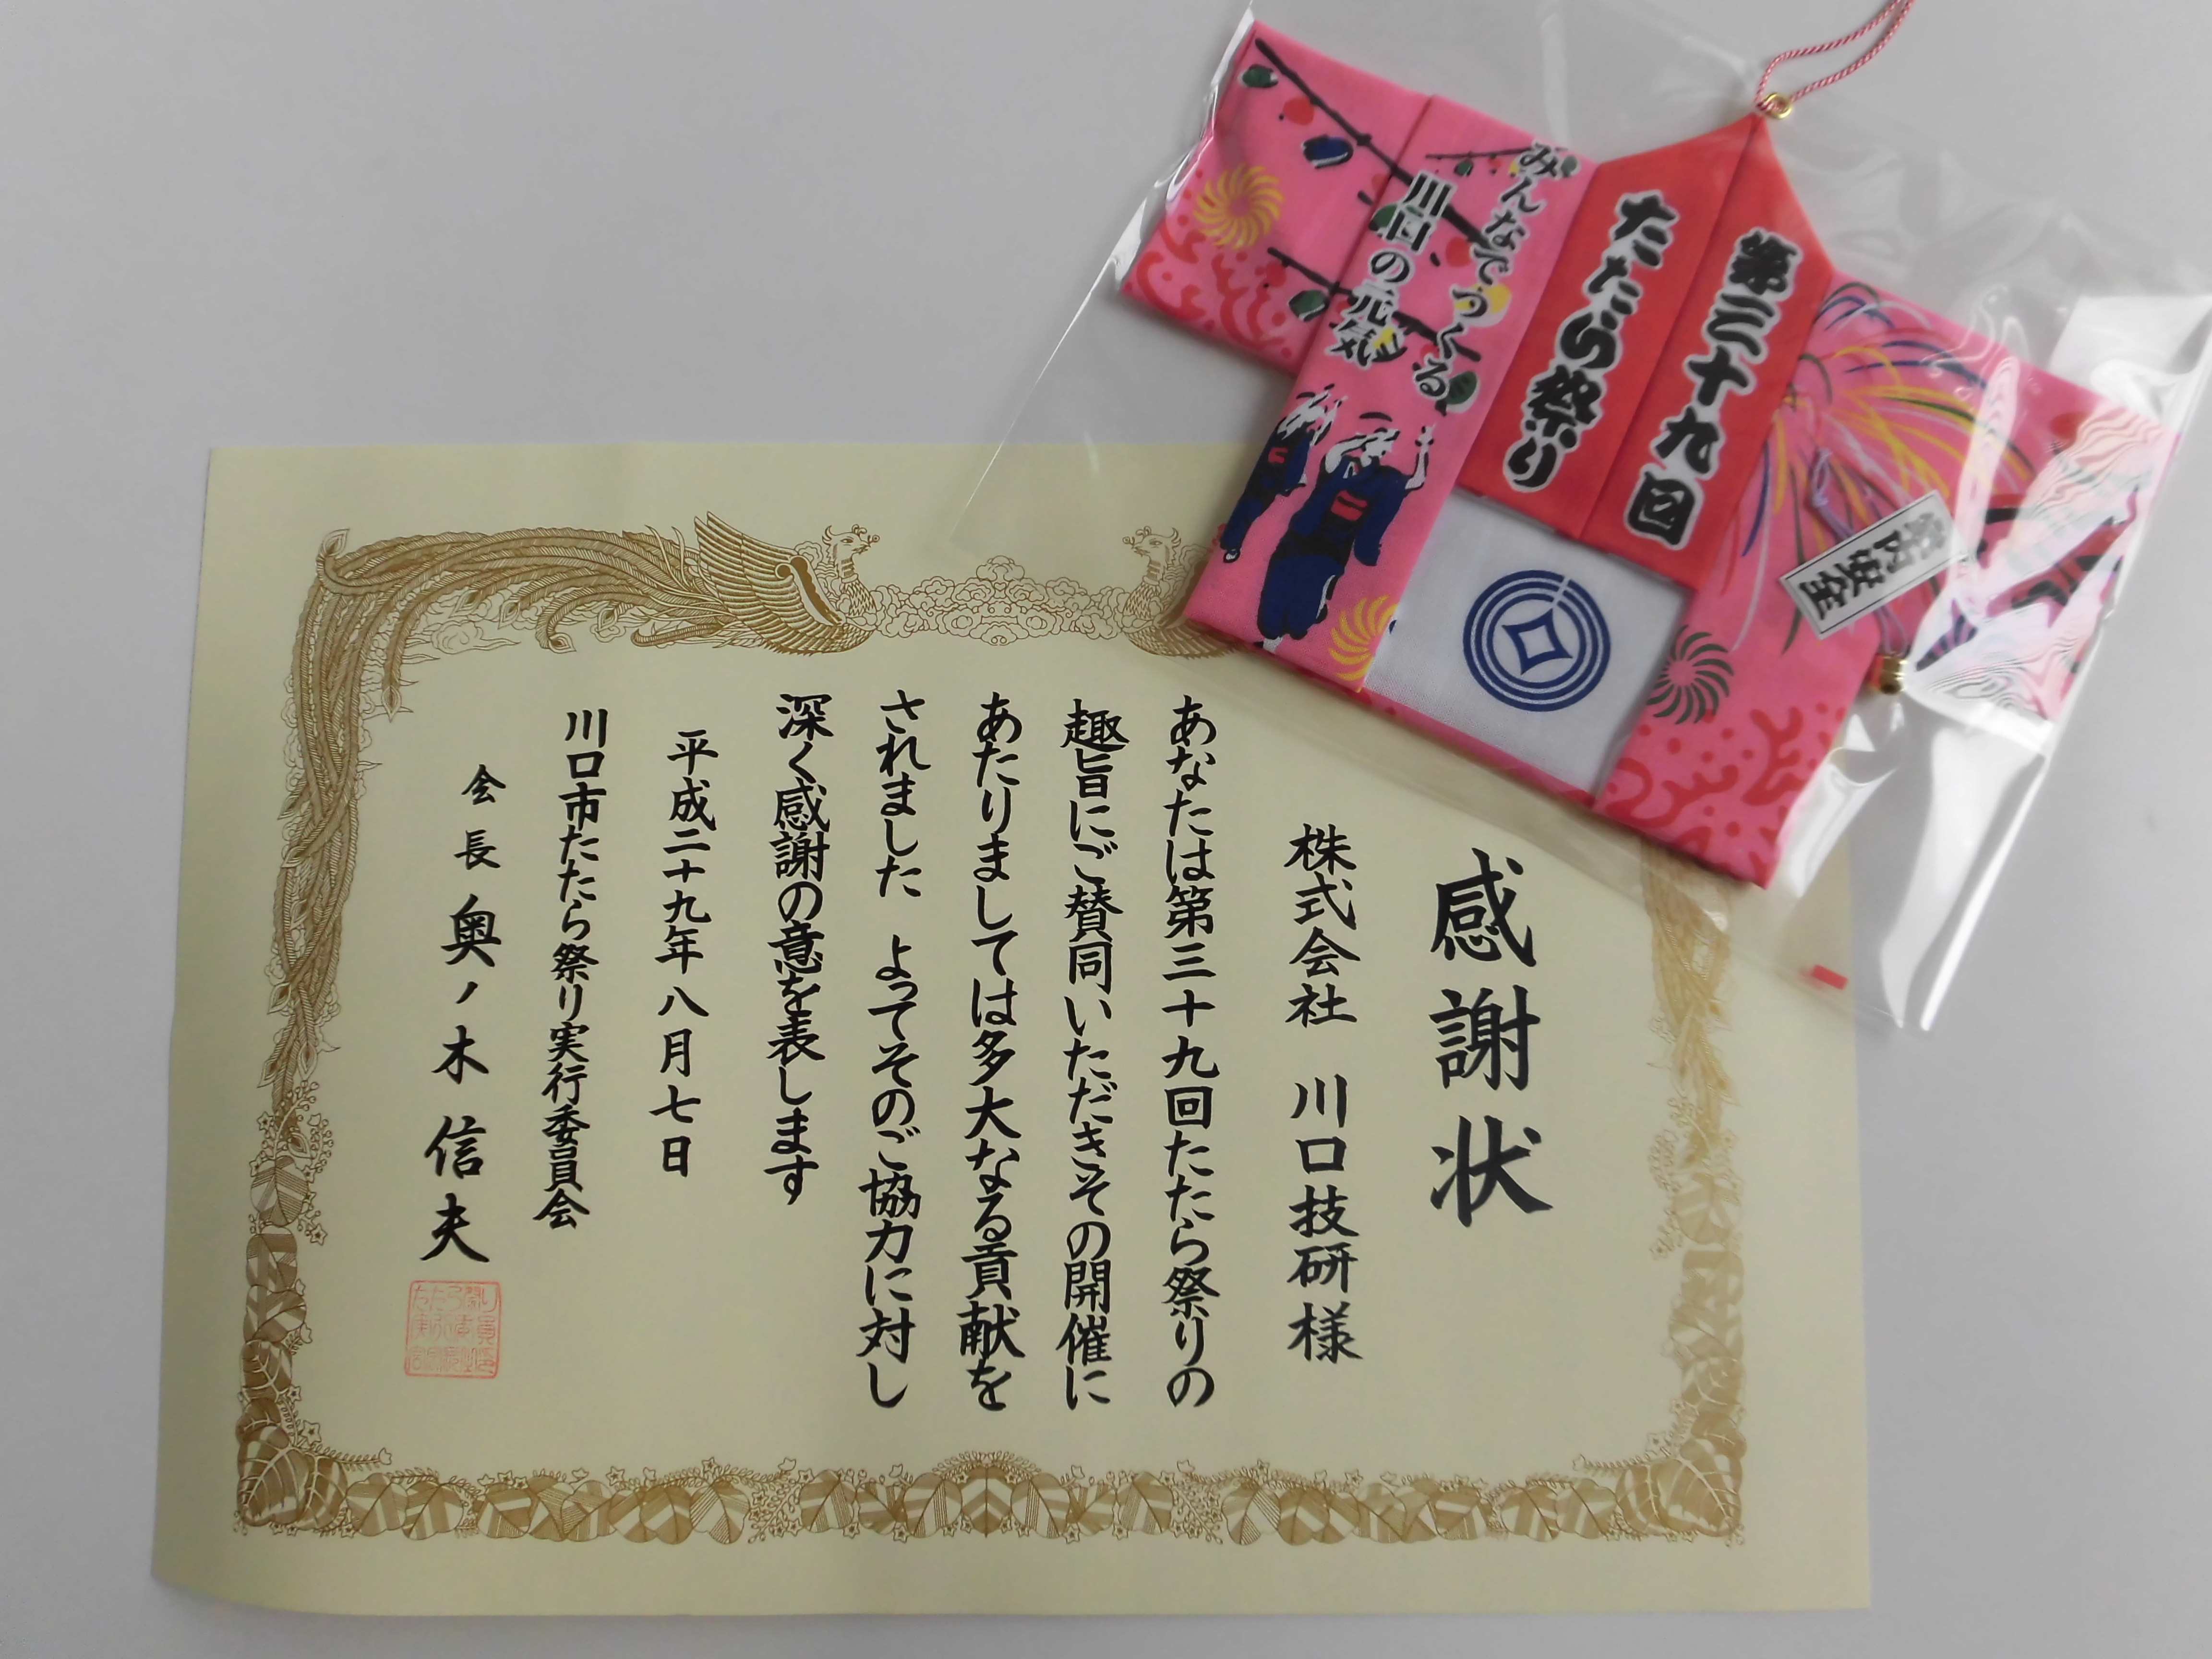 みんなでつくる
川口の元気
第三十九回
たたら祭り
家内安全
感謝状
株式会社 川口技研様
あなたは第三十九回たたら祭りの
趣旨にご賛同いただきその開催に
あたりましては多大なる貢献を
されました よってそのご協力に対し
深く感謝の意を表します
平成二十九年八月七日
川口市たたら祭り実行委員会
会長 奥ノ木信夫